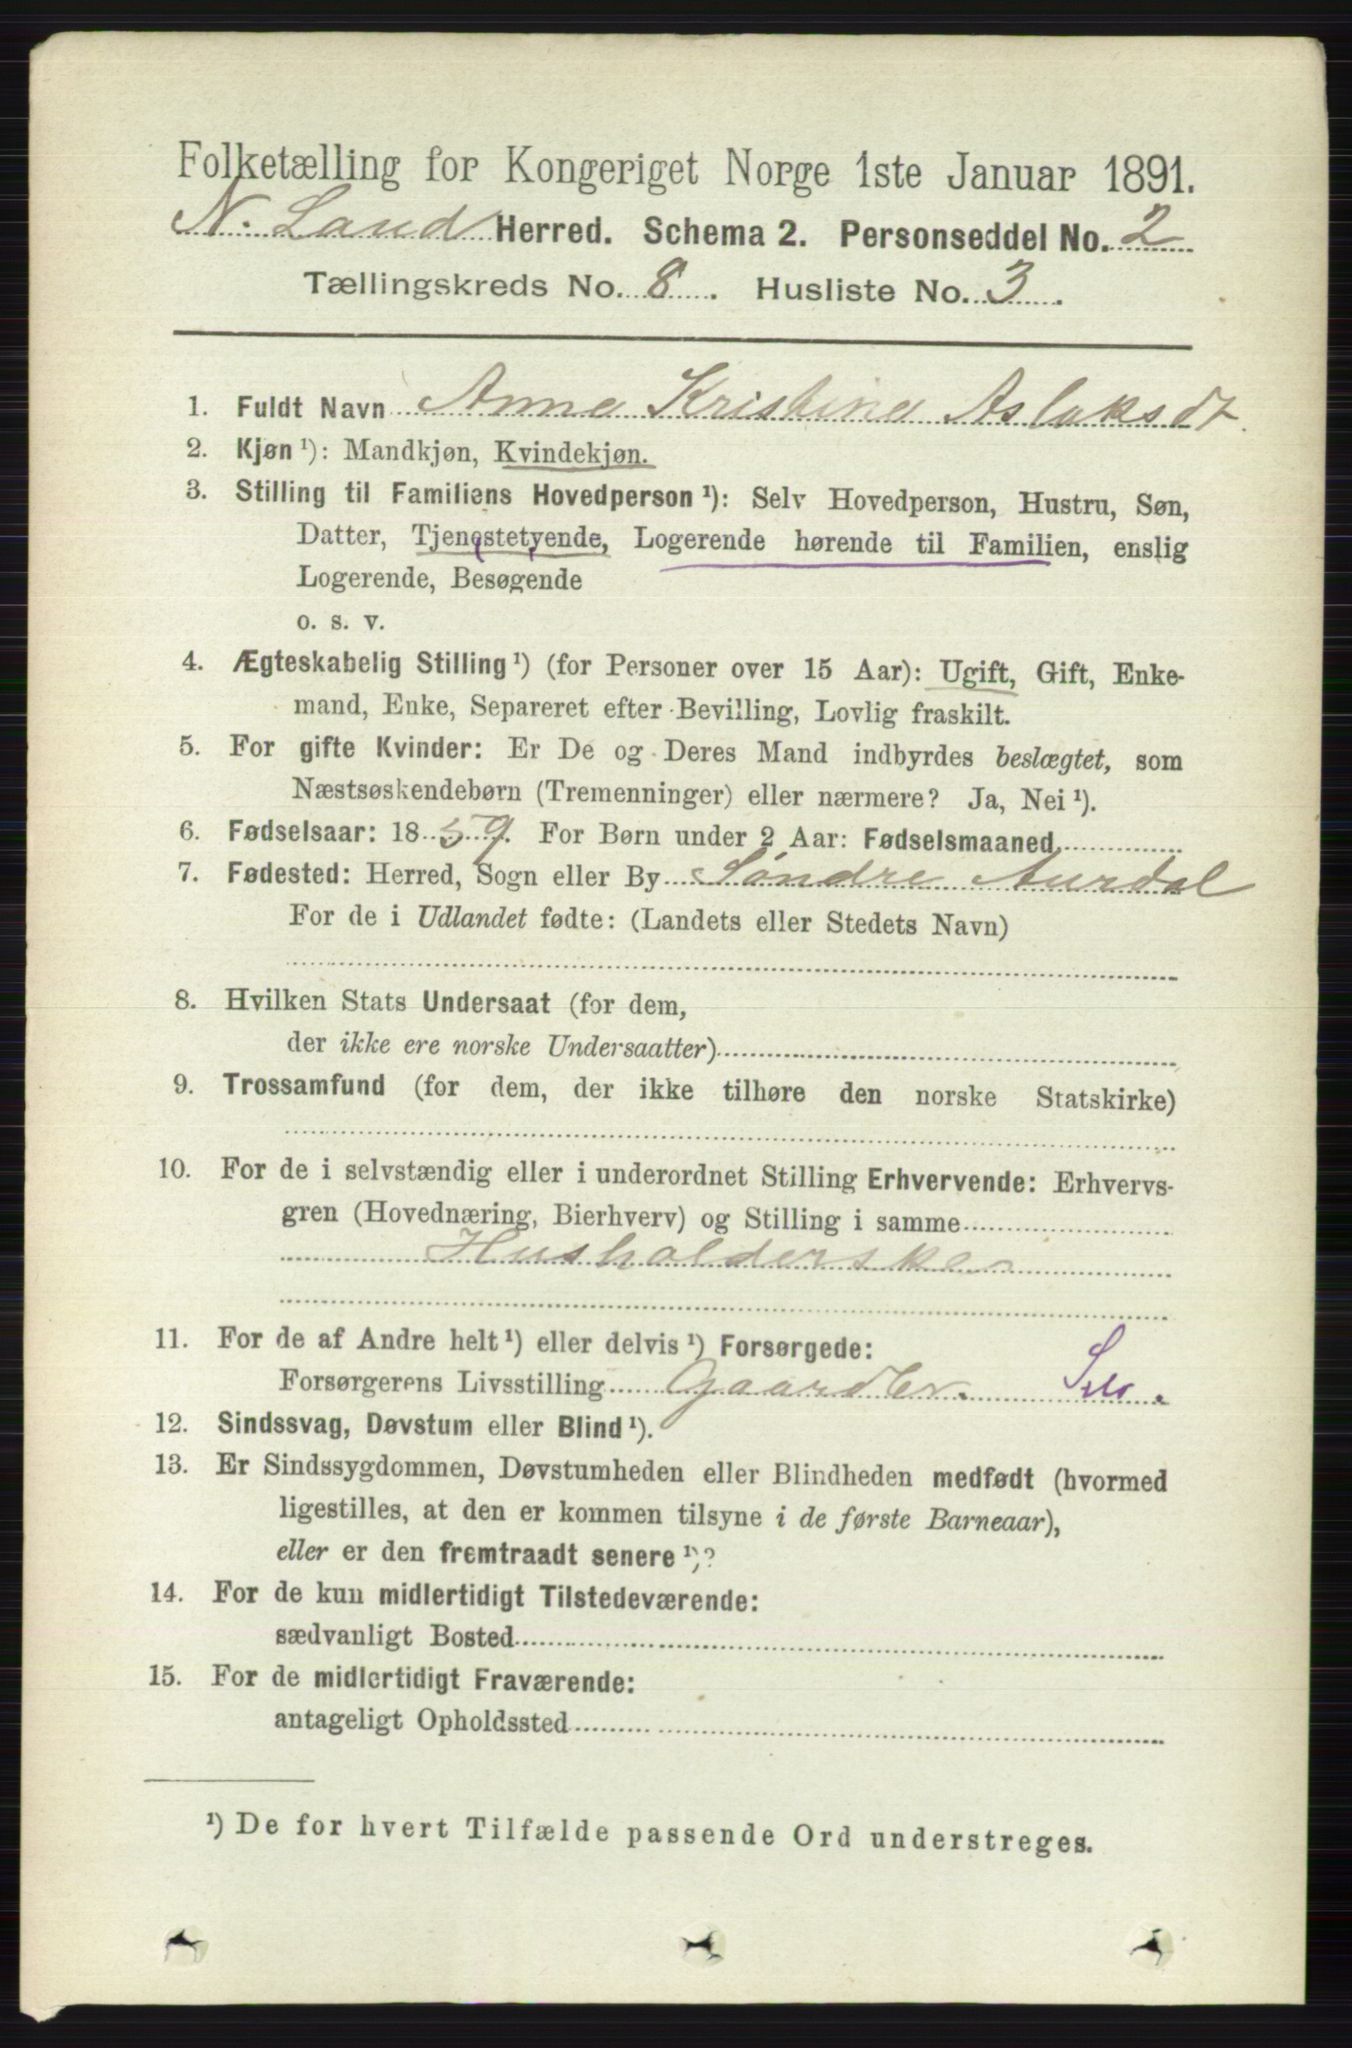 Folketælling for Kongeriget Norge 1ste Januar 1891.
N. Land Herred. Schema 2. Personseddel No. 2
Tællingskreds No. 8. Husliste No. 3.
1. Fuldt Navn Anna Kristina Aslaksdt.
2. Kjøn ¹): Mandkjøn, Kvindekjøn.
3. Stilling til Familiens Hovedperson ¹): Selv Hovedperson, Hustru, Søn,
Datter, Tjenestetyende, Logerende hørende til Familien, enslig
Logerende, Besøgende
o. s. v.
4. Ægteskabelig Stilling ¹) (for Personer over 15 Aar): Ugift, Gift, Enke-
mand, Enke, Separeret efter Bevilling, Lovlig fraskilt.
5. For gifte Kvinder: Er De og Deres Mand indbyrdes beslægtet, som
Næstsøskendebørn (Tremenninger) eller nærmere? Ja, Nei ¹).
6. Fødselsaar: 1859. For Børn under 2 Aar: Fødselsmaaned
7. Fødested: Herred, Sogn eller By Søndre Aurdal
For de i Udlandet fødte: (Landets eller Stedets Navn)
8. Hvilken Stats Undersaat (for dem,
der ikke ere norske Undersaatter)
9. Trossamfund (for dem, der ikke tilhøre den norske Statskirke)
10. For de i selvstændig eller i underordnet Stilling Erhvervende: Erhvervs-
gren (Hovednæring, Bierhverv) og Stilling i samme
Husholderske
11. For de af Andre helt ¹) eller delvis ¹) Forsørgede:
Forsørgerens Livsstilling Gaardbr.
12. Sindssvag, Døvstum eller Blind ¹).
13. Er Sindssygdommen, Døvstumheden eller Blindheden medfødt (hvormed
ligestilles, at den er kommen tilsyne i de første Barneaar),
eller er den fremtraadt senere ¹)?
14. For de kun midlertidigt Tilstedeværende:
sædvanligt Bosted
15. For de midlertidigt Fraværende:
antageligt Opholdssted
¹) De for hvert Tilfælde passende Ord understreges.